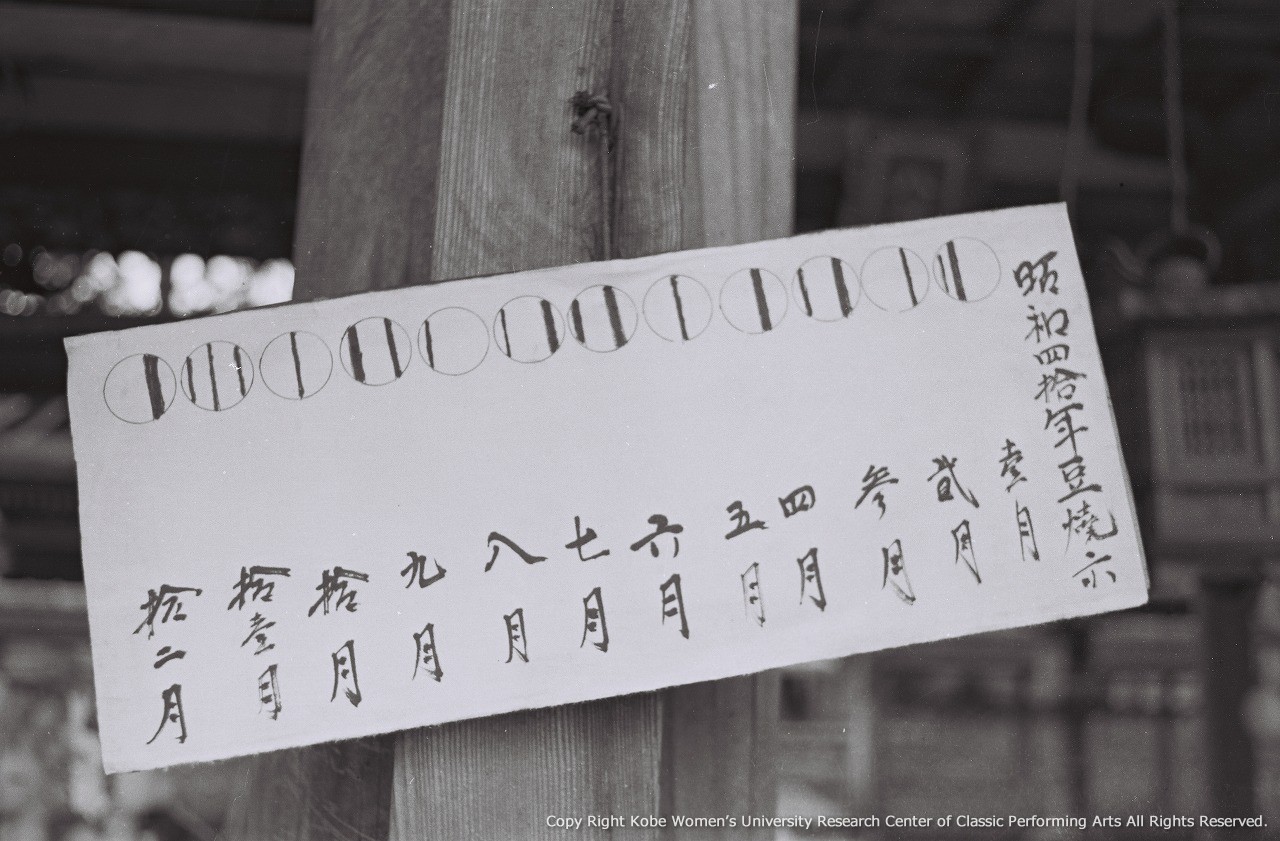 昭和四拾年豆燒六
壹月
貳月
参月
四月
五月
六月
七月
八月
九月
拾月
拾壹月
拾二月
Copy Right Kobe Women's University Research Center of Classic Performing Arts All Rights Reserved.